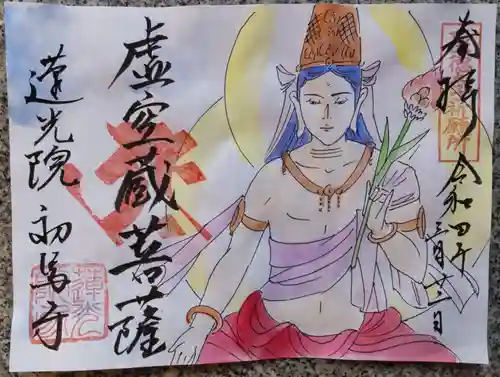 奉拝
令和四年
三月廿二日
虚空蔵菩薩
蓮光院 初馬寺